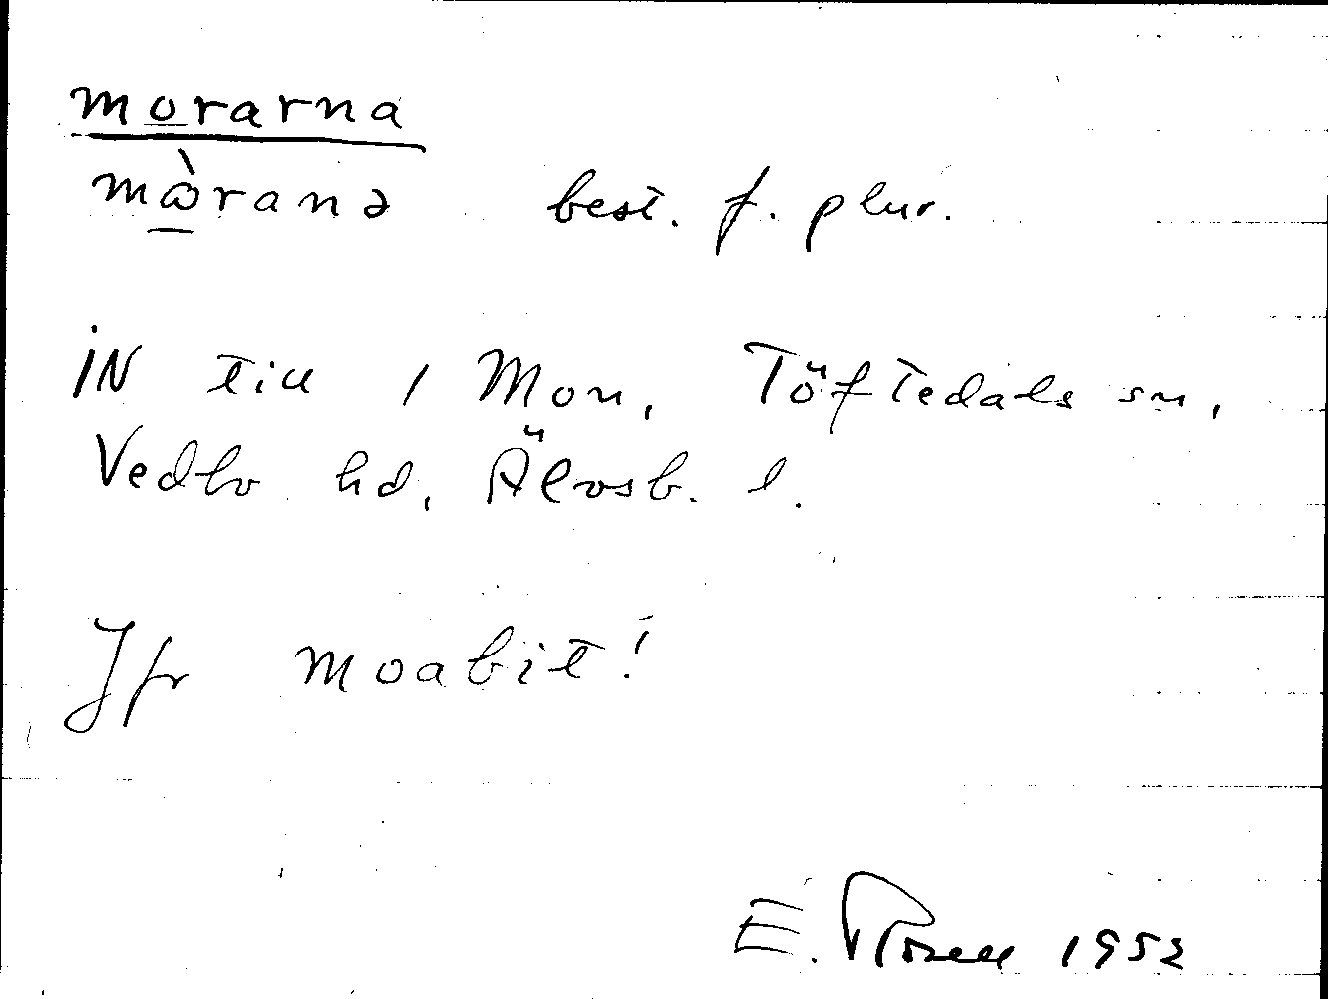 morarna
mòranə best. f. plur.
IN till 1 Mon, Töftedals sn,
Vedbo hd, Älvsb. l.
Jfr moabit!
E. Rosell 1952